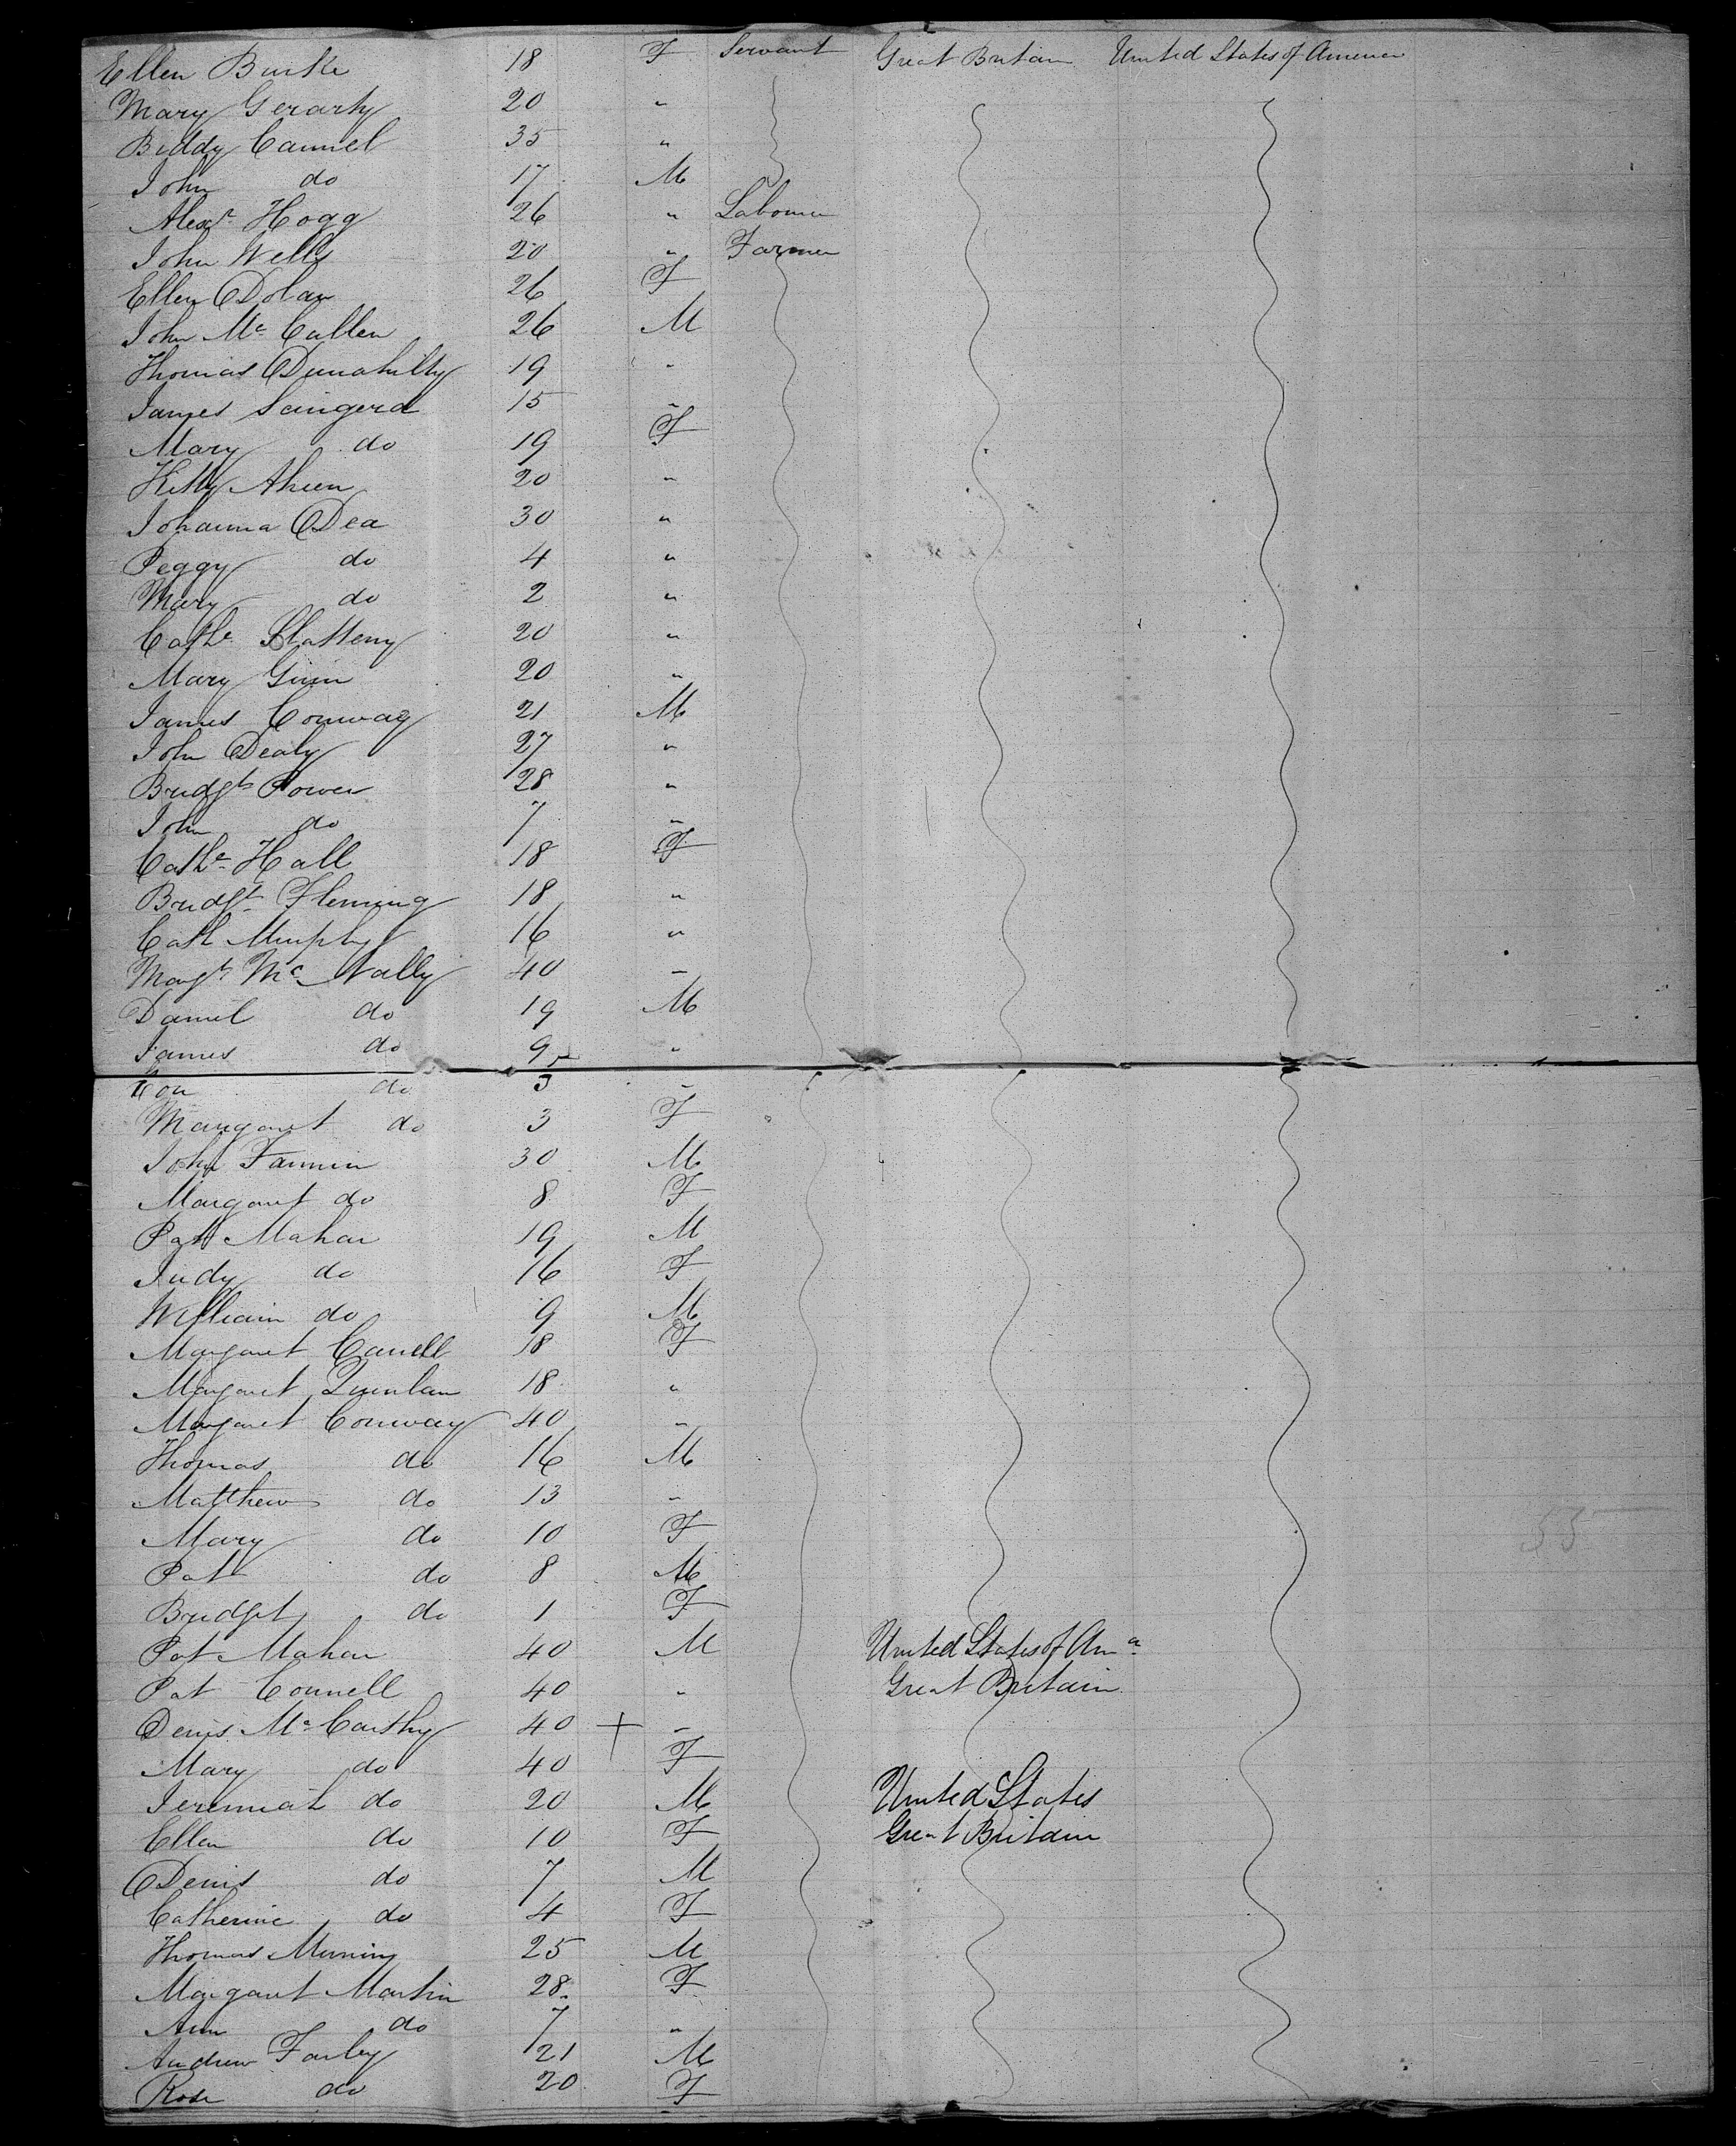 Ellen Burke 18 F Servant Great Britain United States of America
Mary Gerarty 20 "
Biddy Cannel 35 "
John do 17 M
Alexr. Hogg 26 " Labourer
John Wells 20 " Farmer
Ellen Dolan 26 F
John Mc Cullen 26 M
Thomas 19 "
James 15 "
Mary do 19 F
Kitty Ahern 20 "
Johanna Dea 30 "
Peggy do 4 "
Mary do 2 "
Cathe. Slattery 20 "
Mary Ginn 20 "
James Conway 21 M
John Dealy 27 "
Bridgt. Power 28 "
John do 7 "
Cathe. Hall 18 F
Bridgt. Fleming 18 "
Cath Murphy 16 "
Margt. Mc Nally 40 "
Daniel do 19 M
James do 9 "
Con do 5 "
Margaret do 3 F
John Fannin 30 M
Margaret do 8 F
Patk Mahar 19 M
Judy do 16 F
William do 9 M
Margaret Canell 18 F
Margaret Quinlan 18 "
Margaret Conway 40 "
Thomas do 16 M
Matthew do 13 "
Mary do 10 F
Pat do 8 M
Bridget do 1 F
Pat Mahar 40 M United States of Ama.
Pat Connell 40 " Great Britain
Denis Mc Carthy 40 + "
Mary do 40 F
Jeremiah do 20 M United States
Ellen do 10 F Great Britain
Denis do 7 M
Catherine do 4 F
Thomas 25 M
Margaret Martin 28 F
Ann do 7 "
Andrew Farley 21 M
Rose do 20 F
55